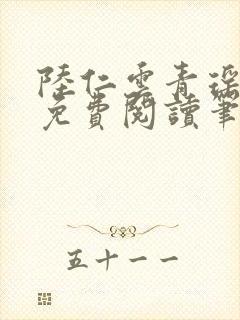 陸仁雲青瑤
免費閱讀筆
五十一一